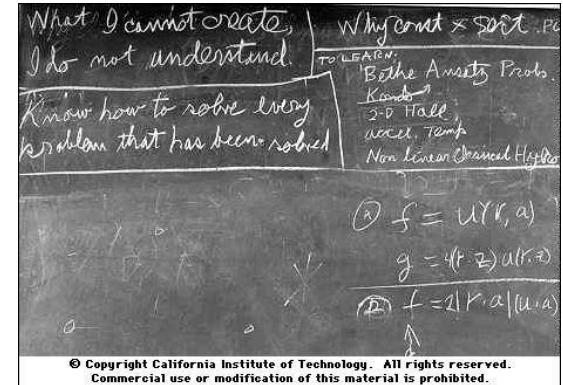 What I cannot create,
I do not understand.
Know how to solve every
problem that has been solved
Why const × sort . PO
TO LEARN.
Bethe Ansatz Probs.
Kondo
2-D Hall
accel. Temp
Non Linear Classical Hydro
(A) f = U(r, a)
g = 4(r. z) u(r, z)
(B) f = 2|r. a|(u. a)
© Copyright California Institute of Technology. All rights reserved.
Commercial use or modification of this material is prohibited.